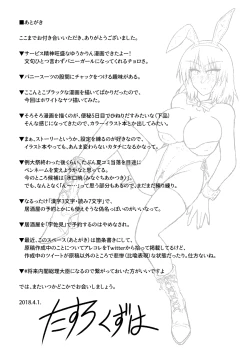 ■あとがき
ここまでお付き合いいただき、ありがとうございました。
▼サービス精神旺盛なゆうかりん漫画できたよー！
文句ひとつ言わずバニーガールになってくれるチョロさ。
▼バニースーツの股間にチャックをつける趣味がある。
▼ここんとこブラックな漫画を描いてばかりだったので、
今回はホワイトなヤツ描いてみた。
▼そろそろ漫画を描くのが、便秘5日目でひねりだすみたいな（下品）
そんな感じになってきたので、カラーイラスト本とか出してみたい。
▼まぁ、ストーリーっていうか、設定を練るのが好きなので、
イラスト本やっても、あんま変わらないカタチになるかも。
▼例大祭終わった後くらい、たぶん夏コミ当落を目途に
ペンネームを変えようかなと考えてる。
でも、なんとなく「んー…」って思う部分もあるので、まだまだ練り練り。
▼なるったけ「漢字3文字・読み7文字」で、
居酒屋の予約とかにも使えそうな偽名っぽいのがいいなって。
▼居酒屋を「宇佐見」で予約するのはやめなされ。
▼最近、このスペース（あとがき）は箇条書きにして、
原稿作成中のことについてアレコレをTwitterから拾って掲載してるけど、
▼将来内閣総理大臣になるので繋がっておいた方がいいですよ
では、またいつかどこかでお会いしましょう。
2018.4.1.
たすろくずは